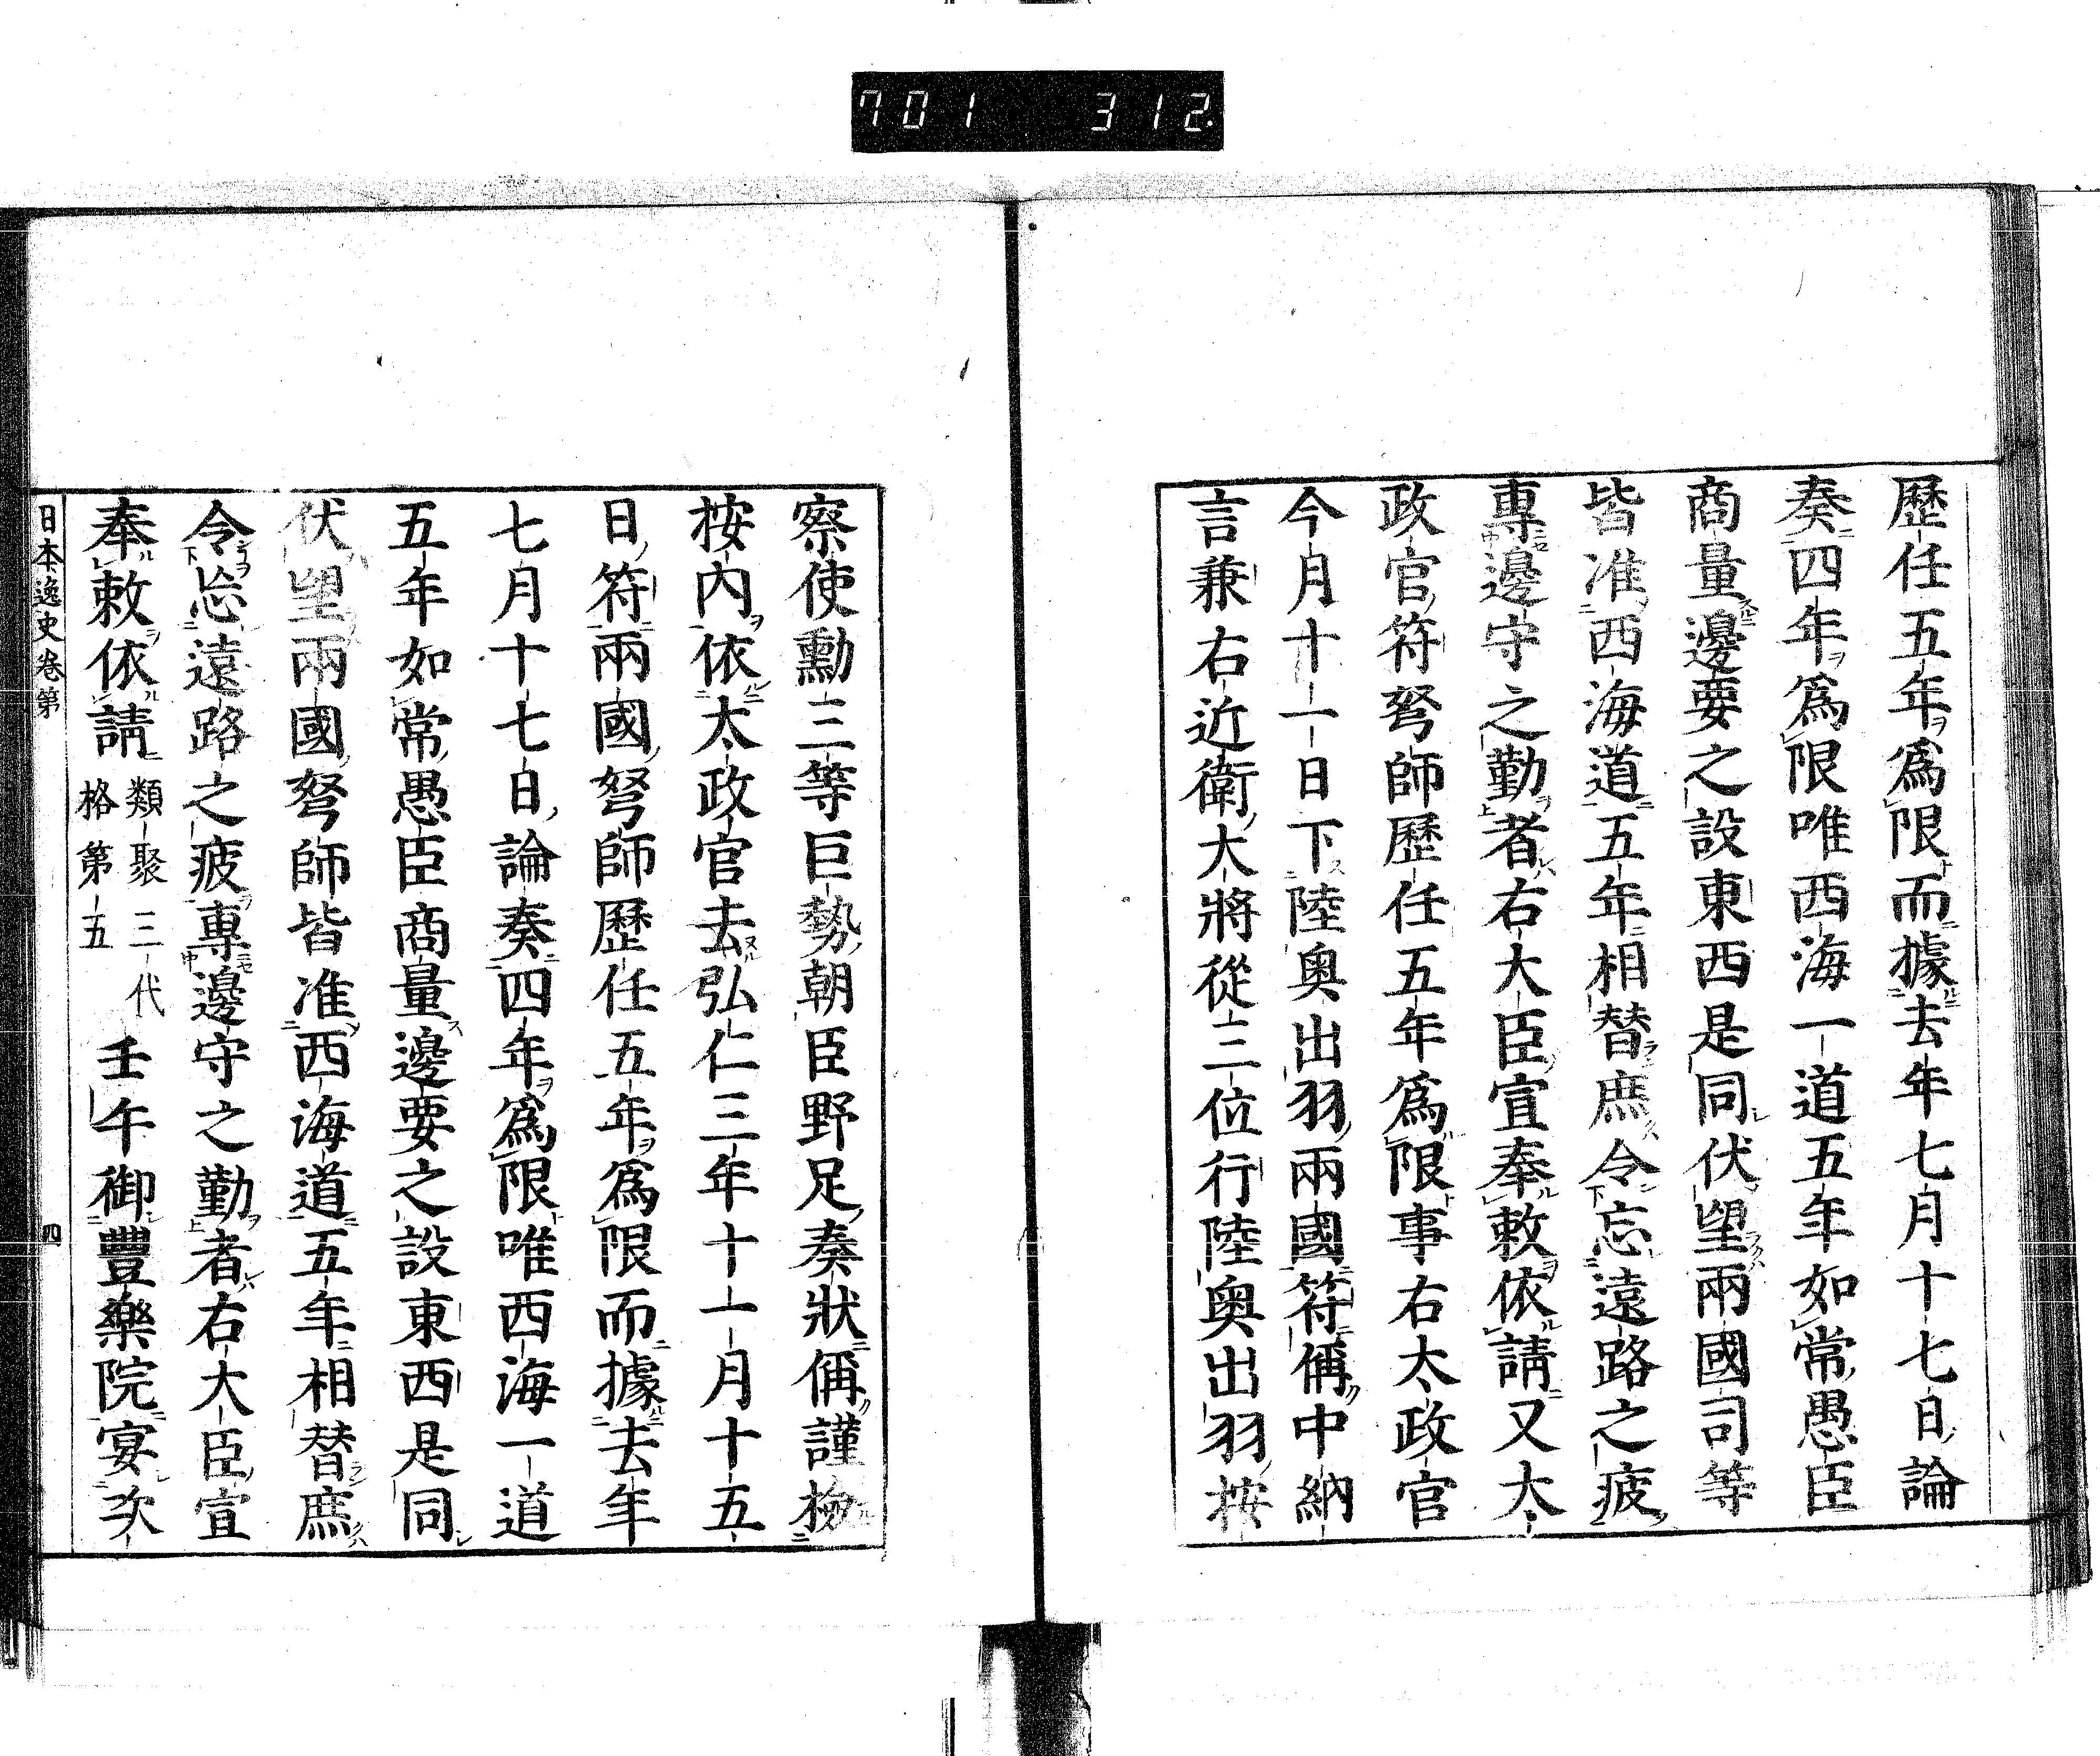 701 312
歷任五年爲限而據去年七月十七日論
奏四年爲限唯西海一道五年如常愚臣
商量邊要之設東西是同伏望兩國司等
皆准西海道五年相替庶令忘遠路之疲
專邊守之勤者右大臣宣奉敕依請又太
政官符弩師歷任五年爲限事右太政官
今月十一日下陸奧出羽兩國符偁中納
言兼右近衛大將從三位行陸奧出羽按
察使勳三等巨勢朝臣野足奏狀偁謹檢
按內依太政官去弘仁三年十一月十五
日符兩國弩師歷任五年爲限而據去年
七月十七日論奏四年爲限唯西海一道
五年如常愚臣商量邊要之設東西是同
伏望兩國弩師皆准西海道五年相替庶
令忘遠路之疲專邊守之勤者右大臣宣
奉敕依請類聚三代格第五壬午御豐樂院宴次
日本逸史卷第 四